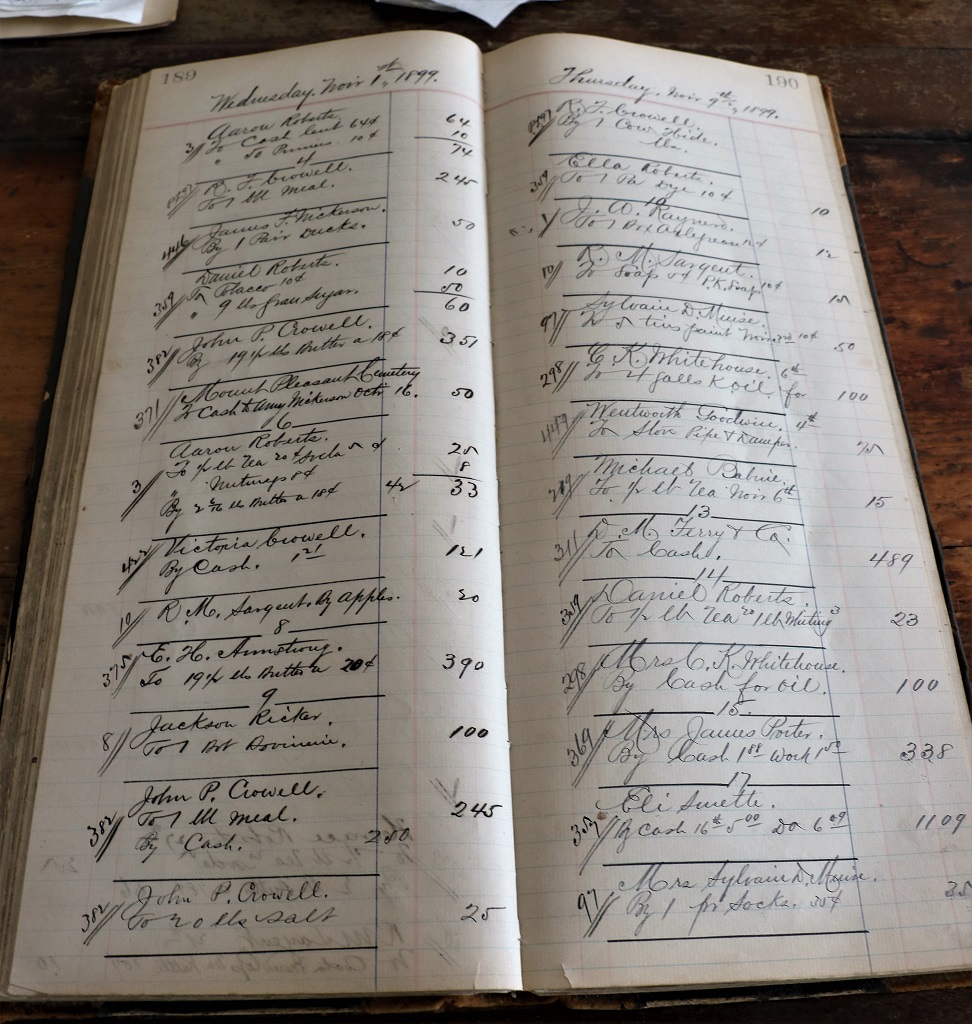 189
Wednesday, Novr 1st, 1899.
Aaron Roberts
3 To Cash lent 64¢ 64
" To Prunes 10¢ 10
74
4
R. F. Crowell.
To 1 bbl Meal. 245
James F. Nickerson.
446 By 1 Pair Ducks. 50
Daniel Roberts.
359 To Tobacco 10¢ 10
" 9 lbs Gran Sugar. 50
60
John P. Crowell.
382 By 19½ lbs Butter a 18¢ 351
Mount Pleasant Cemetery
371 To Cash to Amy Nickerson Octr 16. 50
6
Aaron Roberts.
To ½ lb Tea 20 ¢ Soda 5 ¢ 25
3 " Nutmegs 8¢ 8
By 2 lbs Butter a 18¢ 42 33
Victoria Crowell.
422 By Cash. 1 21 121
10 R. M. Sargent. By Apples. 20
8
E. H. Armstrong.
375 To 19½ lbs Butter a 20¢ 390
9
Jackson Ricker.
8 To 1 Bot 100
John P. Crowell.
382 To 1 bbl Meal. 245
By Cash. 250
John P. Crowell.
382 To 20 lbs Salt 25
190
Thursday, Novr 9th, 1899.
R. F. Crowell.
By 1 Cow Hide.
lbs.
Ella Roberts.
359 To 1 Pk Dye 10¢ 10
10
J. A. Raynard.
To 1 Box 12
R. M. Sargent.
10 To Soap 5¢ P.K. Soap 10¢ 15
Sylvain D. Muise.
97 To 5 tins paint Novr 3rd 10¢ 50
C. K. Whitehouse. 6th
298 To 4 galls K oil for 100
Wentworth Goodwin. 4th
449 To Stove Pipe & Damper. 75
Michael Babine.
To ½ lb Tea Novr 6th 15
13
D. M. Ferry & Co.
311 To Cash. 489
14
Daniel Roberts.
359 To ½ lb Tea 20 1 lb Whiting 3 23
Mrs C. K. Whitehouse.
298 By Cash for oil. 100
15.
Mrs James Porter.
369 By Cash 1 88 Work 1 50 338
17
Eli Surette.
By Cash 16th 5 00 Do 6 09 1109
Mrs Sylvain D. Muise.
97 By 1 pr Socks. 35¢ 35